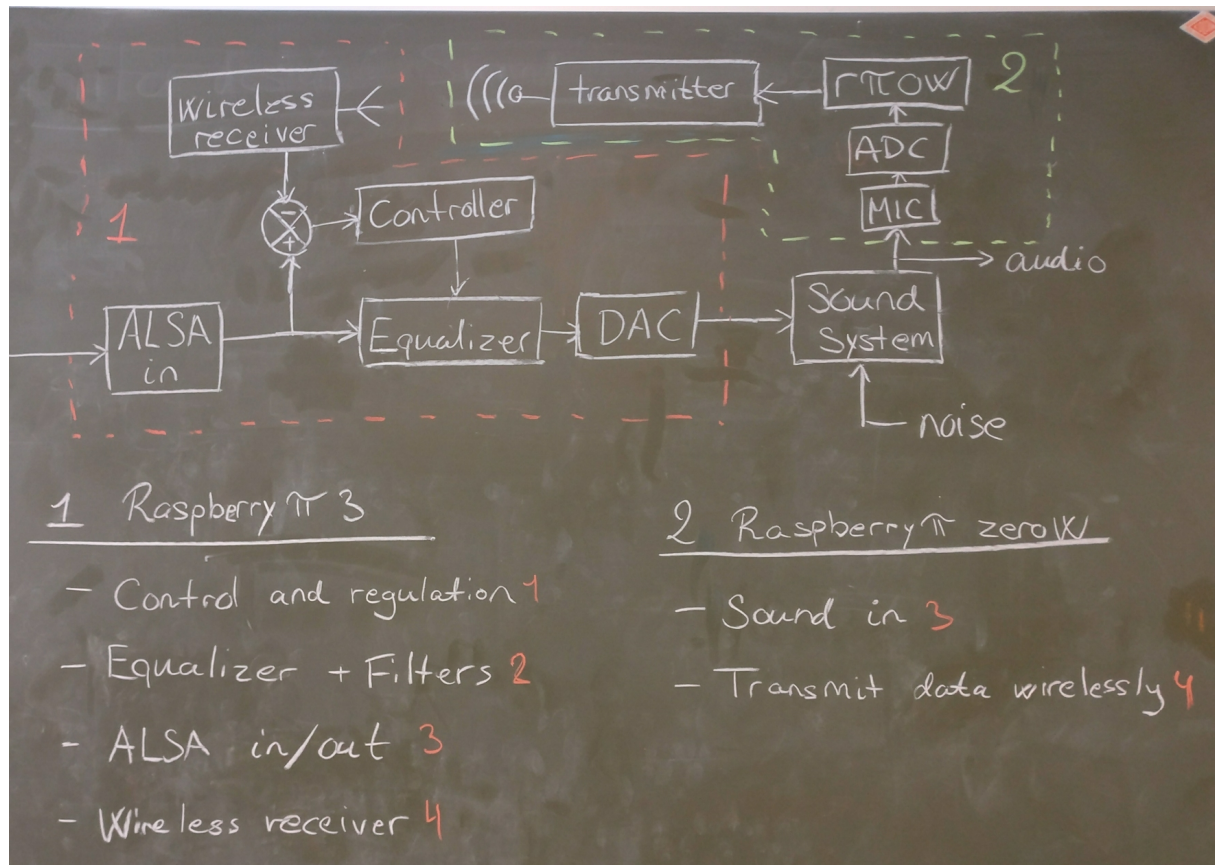 wireless
receiver
transmitter
rπ0W
2
ADC
MIC
1
-
+
Controller
audio
ALSA
in
Equalizer
DAC
Sound
System
noise
1 Raspberry π 3
- Control and regulation 1
- Equalizer + Filters 2
- ALSA in/out 3
- Wireless receiver 4
2 Raspberry π zeroW
- Sound in 3
- Transmit data wirelessly 4